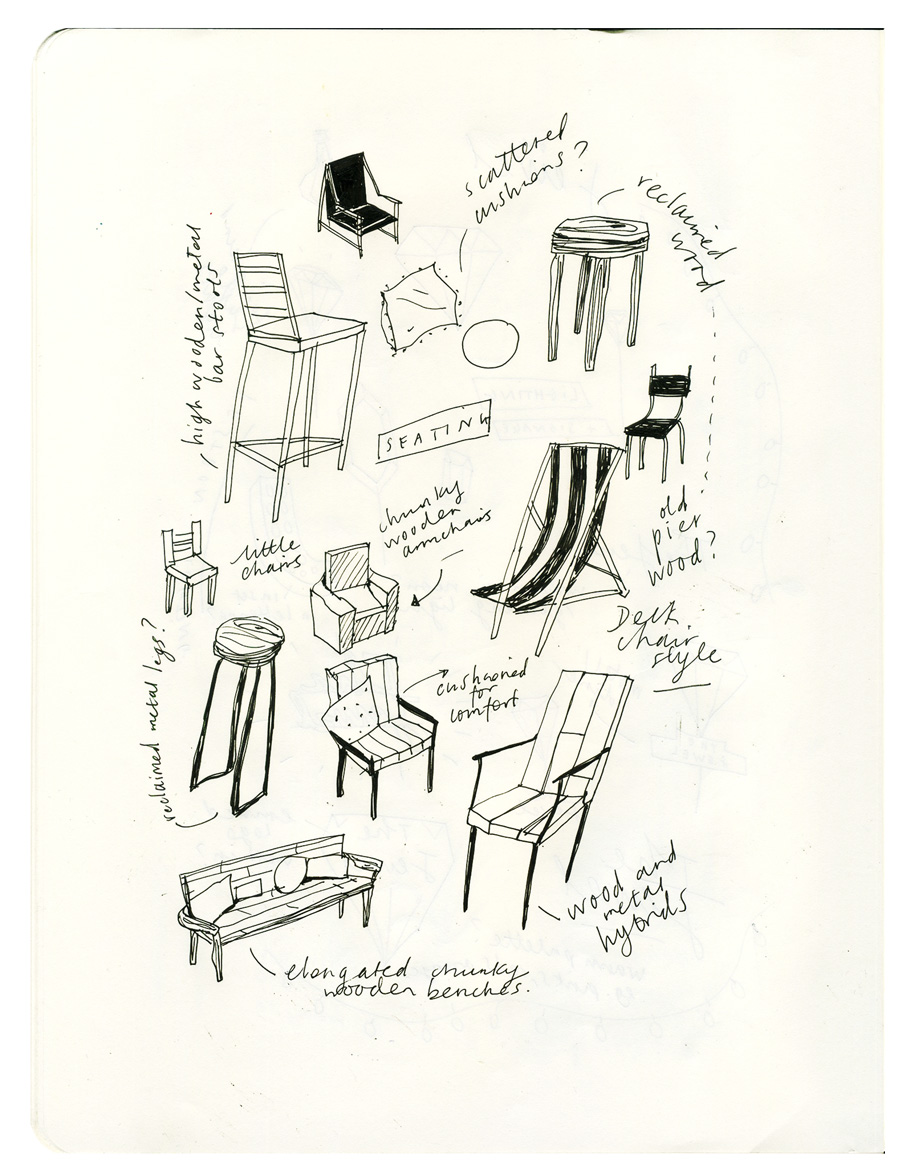 scattered
cushions?
reclaimed
wood
high wooden/metal
bar stools
SEATING
chunky
wooden
armchairs
old
pier
wood?
little
chairs
Deck
chair
style
reclaimed metal legs?
cushioned
for
comfort
wood and
metal
hybrids
elongated chunky
wooden benches.